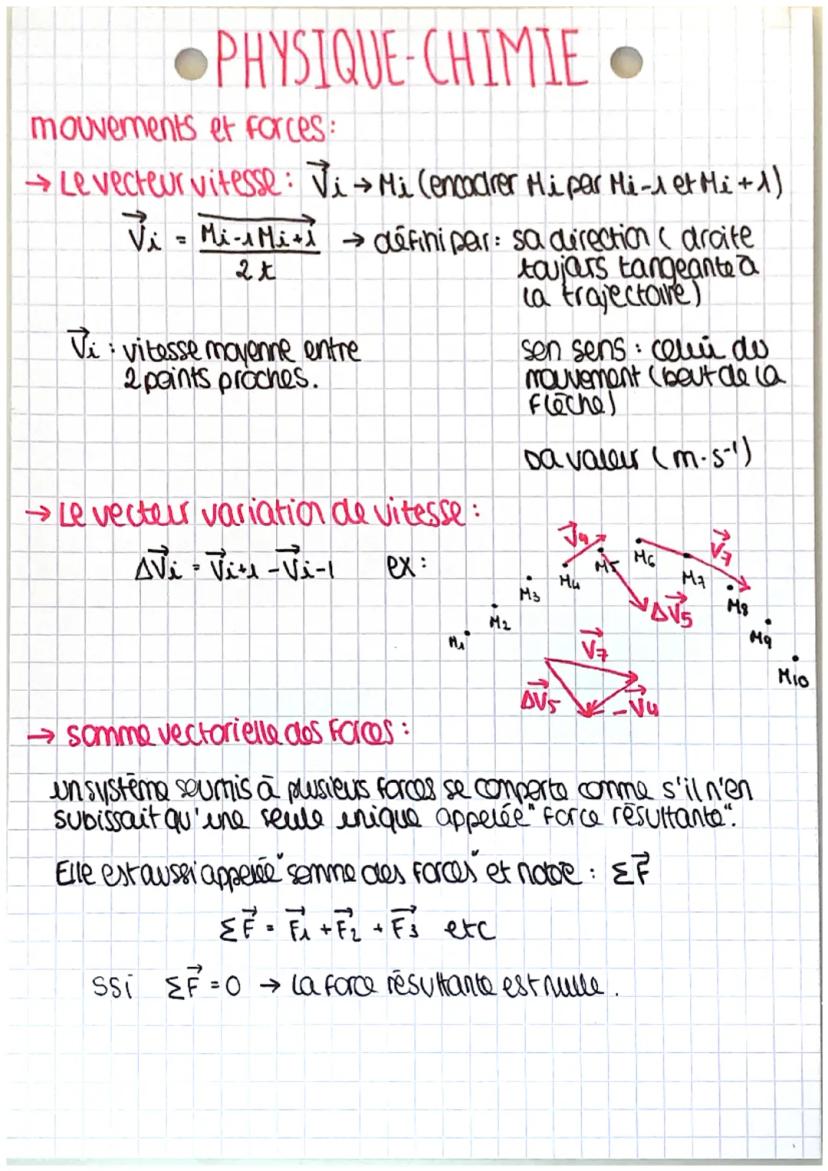 PHYSIQUE-CHIMIE
mouvements et forces:
→ Le vecteur vitesse: V⃗i → Mi (encadrer Mi par Mi-1 et Mi+1)
V⃗i = Mi-1Mi+1 → défini par: sa direction ( droite
2t toujours tangeante à
la trajectoire)
V⃗i : vitesse moyenne entre son sens : celui du
2 points proches. mouvement (bout de la
flèche)
sa valeur (m.s⁻¹)
→ Le vecteur variation de vitesse :
ΔV⃗i = V⃗i+1 - V⃗i-1 ex:
V⃗4 M6 V⃗7
M5 M4 M7
M3 M8
ΔV⃗5
M2 M9
M1 V⃗7
M10
ΔV⃗5 -V⃗4
→ somme vectorielle des forces :
un système soumis à plusieurs forces se comporte comme s'il n'en
subissait qu'une seule unique appelée "force résultante".
Elle est aussi appelée "somme des forces" et notée : ΣF⃗
ΣF⃗ = F⃗1 + F⃗2 + F⃗3 etc
ssi ΣF⃗ = 0 → la force résultante est nulle.